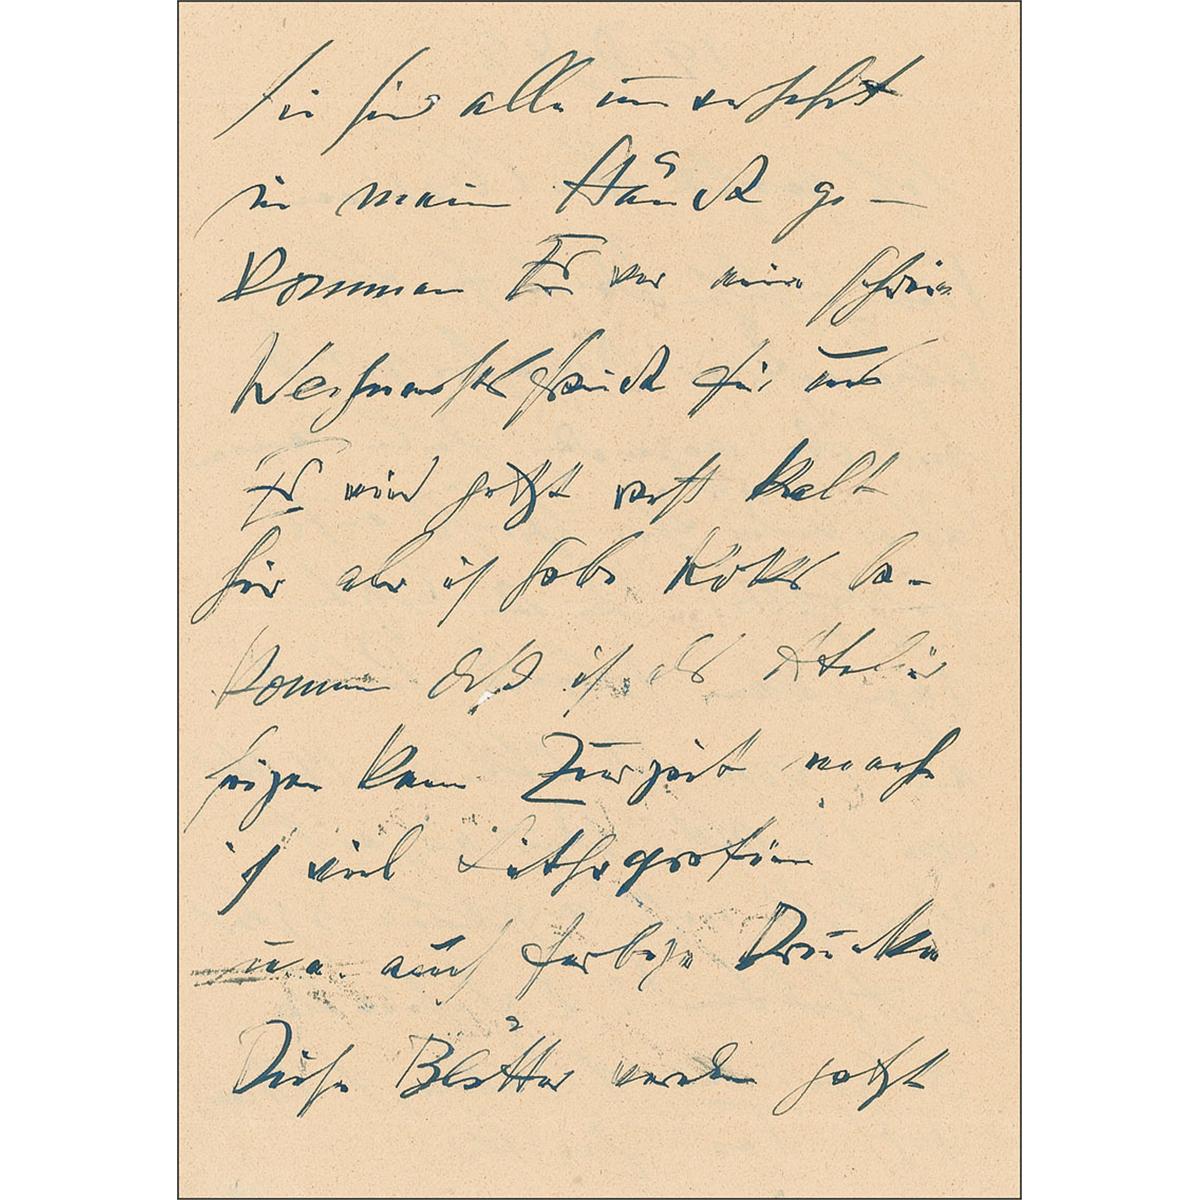 Sie sind alle unversehrt
in meine Hände ge-
kommen Es war eine schöne
Weihnachtsfreude für uns
Es wird jetzt recht kalt
hier aber ich habe Koks be-
kommen daß ich das Atelier
heizen kann Zurzeit mache
ich viel Lithografien
u.a. auch farbige Drucke
Diese Blätter werden jetzt